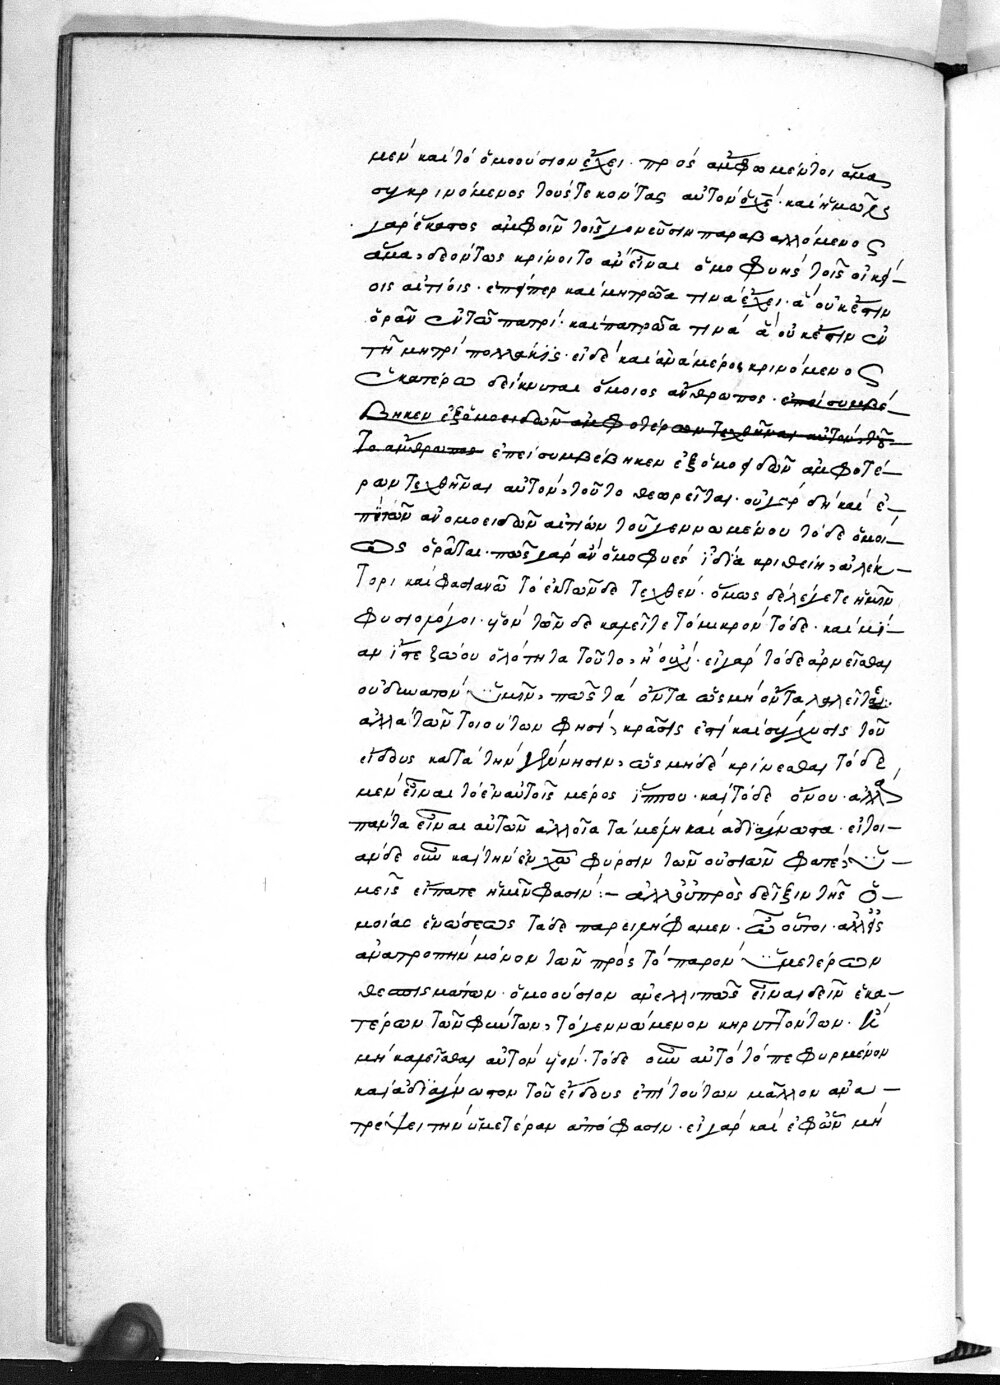 μὲν καὶ τὸ ὁμοούσιον ἔχει· πρὸς ἄμφω μέντοι ἅμα
συγκρινόμενος τοὺς τεκόντας αὐτὸν οὐχί· καὶ ἡμῶν
γὰρ ἕκαστος ἀμφοῖν τοῖς γονεῦσιν παραβαλλόμενος
ἅμα, οὐκ ὄντως κρίνοιτο ἂν εἶναι ὁμοφυὴς τοῖς οἰκεί-
οις αἰτίοις· ἐπείπερ καὶ μητρῶα τινὰ ἔχει· ἃ οὐκ ἔστιν
ὁρᾶν ἐν τῶ πατρί· καὶ πατρῶα τινὰ ἃ οὐκ ἔστιν ἐν
τῆ μητρὶ πολλάκις· εἰ δὲ καὶ ἀνὰ μέρος κρινόμενος
ἑκατέρω δείκνυται ὅμοιος ἄνθρωπος· ἐπεὶ συμβέ-
βηκεν ἐξ ὁμοειδῶν ἀμφοτέρων τεχθῆναι αὐτὸν, τοῦ-
το ἄνθρωπος ἐπεὶ συμβέβηκεν ἐξ ὁμοειδῶν ἀμφοτέ-
ρων τεχθῆναι αὐτὸν, τοῦτο θεωρεῖται· οὐ γὰρ δὴ καὶ ἐ-
πὶ τῶν ἀνομοειδῶν αἰτίων τοῦ γεννωμένου τόδε ὁμοί-
ως ὁρᾶται· πῶς γὰρ ἂν ὁμοφυὲς ἰδία κριθείη, ἀλέκ-
τορι καὶ φασιανῶ τὸ ἐκ τῶνδε τεχθέν· ὅμως δὲ λέγετε ἡμῖν
φυσιολόγοι· υἱὸν τῶνδε καλεῖτε τὸ μικρὸν τόδε· καὶ μί-
αν ζώου ὁλότητα τοῦτο, ἢ οὐχί· εἰ γὰρ τόδε ἀρνεῖσθαι
οὐ δυνατὸν ὑμῖν, πῶς τὰ ὄντα ὡς μὴ ὄντα λαλεῖτε·
ἀλλὰ τῶν τοιούτων φησὶ, κρᾶσις ἐστὶ καὶ σύγχυσις τοῦ
εἴδους κατὰ τὴν γέννησιν, ὡς μηδὲ κρίνεσθαι τόδε
μὲν εἶναι τὸ ἐν αὐτοῖς μέρος ἵππου· καὶ τόδε ὄνου· ἀλλὰ
πάντα εἶναι αὐτῶν ἀλλοῖα τὰ μέρη καὶ ἀδιάγνωστα· εἴτοι-
αύδε οὖν καὶ τὴν ἐν χῶ φύρσιν τῶν οὐσιῶν φατὲ, ὑ-
μεῖς εἴπατε ἡμῖν φασίν:- ἀλλ' οὐ πρὸς δεῖξιν τῆς ὁ-
μοίας ἑνώσεως τάδε παρειλήφαμεν· ὦ οὗτοι· ἀλλὰ πρὸς
ἀνατροπὴν μόνον τῶν πρὸς τὸ παρὸν ὑμετέρων
θεσπισμάτων· ὁμοούσιον ἀνελλιπῶς εἶναι δεῖν ἑκα-
τέρων τῶν φύντων, τὸ γεννώμενον κηρυττόντων· ἢ
μὴ καλεῖσθαι αὐτὸν υἱόν· τόδε οὖν αὐτὸ τὸ πεφυρμένον
καὶ ἀδιάγνωστον τοῦ εἴδους ἐπὶ τούτων μᾶλλον ἀνα-
τρέψει τὴν ὑμετέραν ἀπόφασιν· εἰ γὰρ καὶ ἐφ' ὧν μὴ